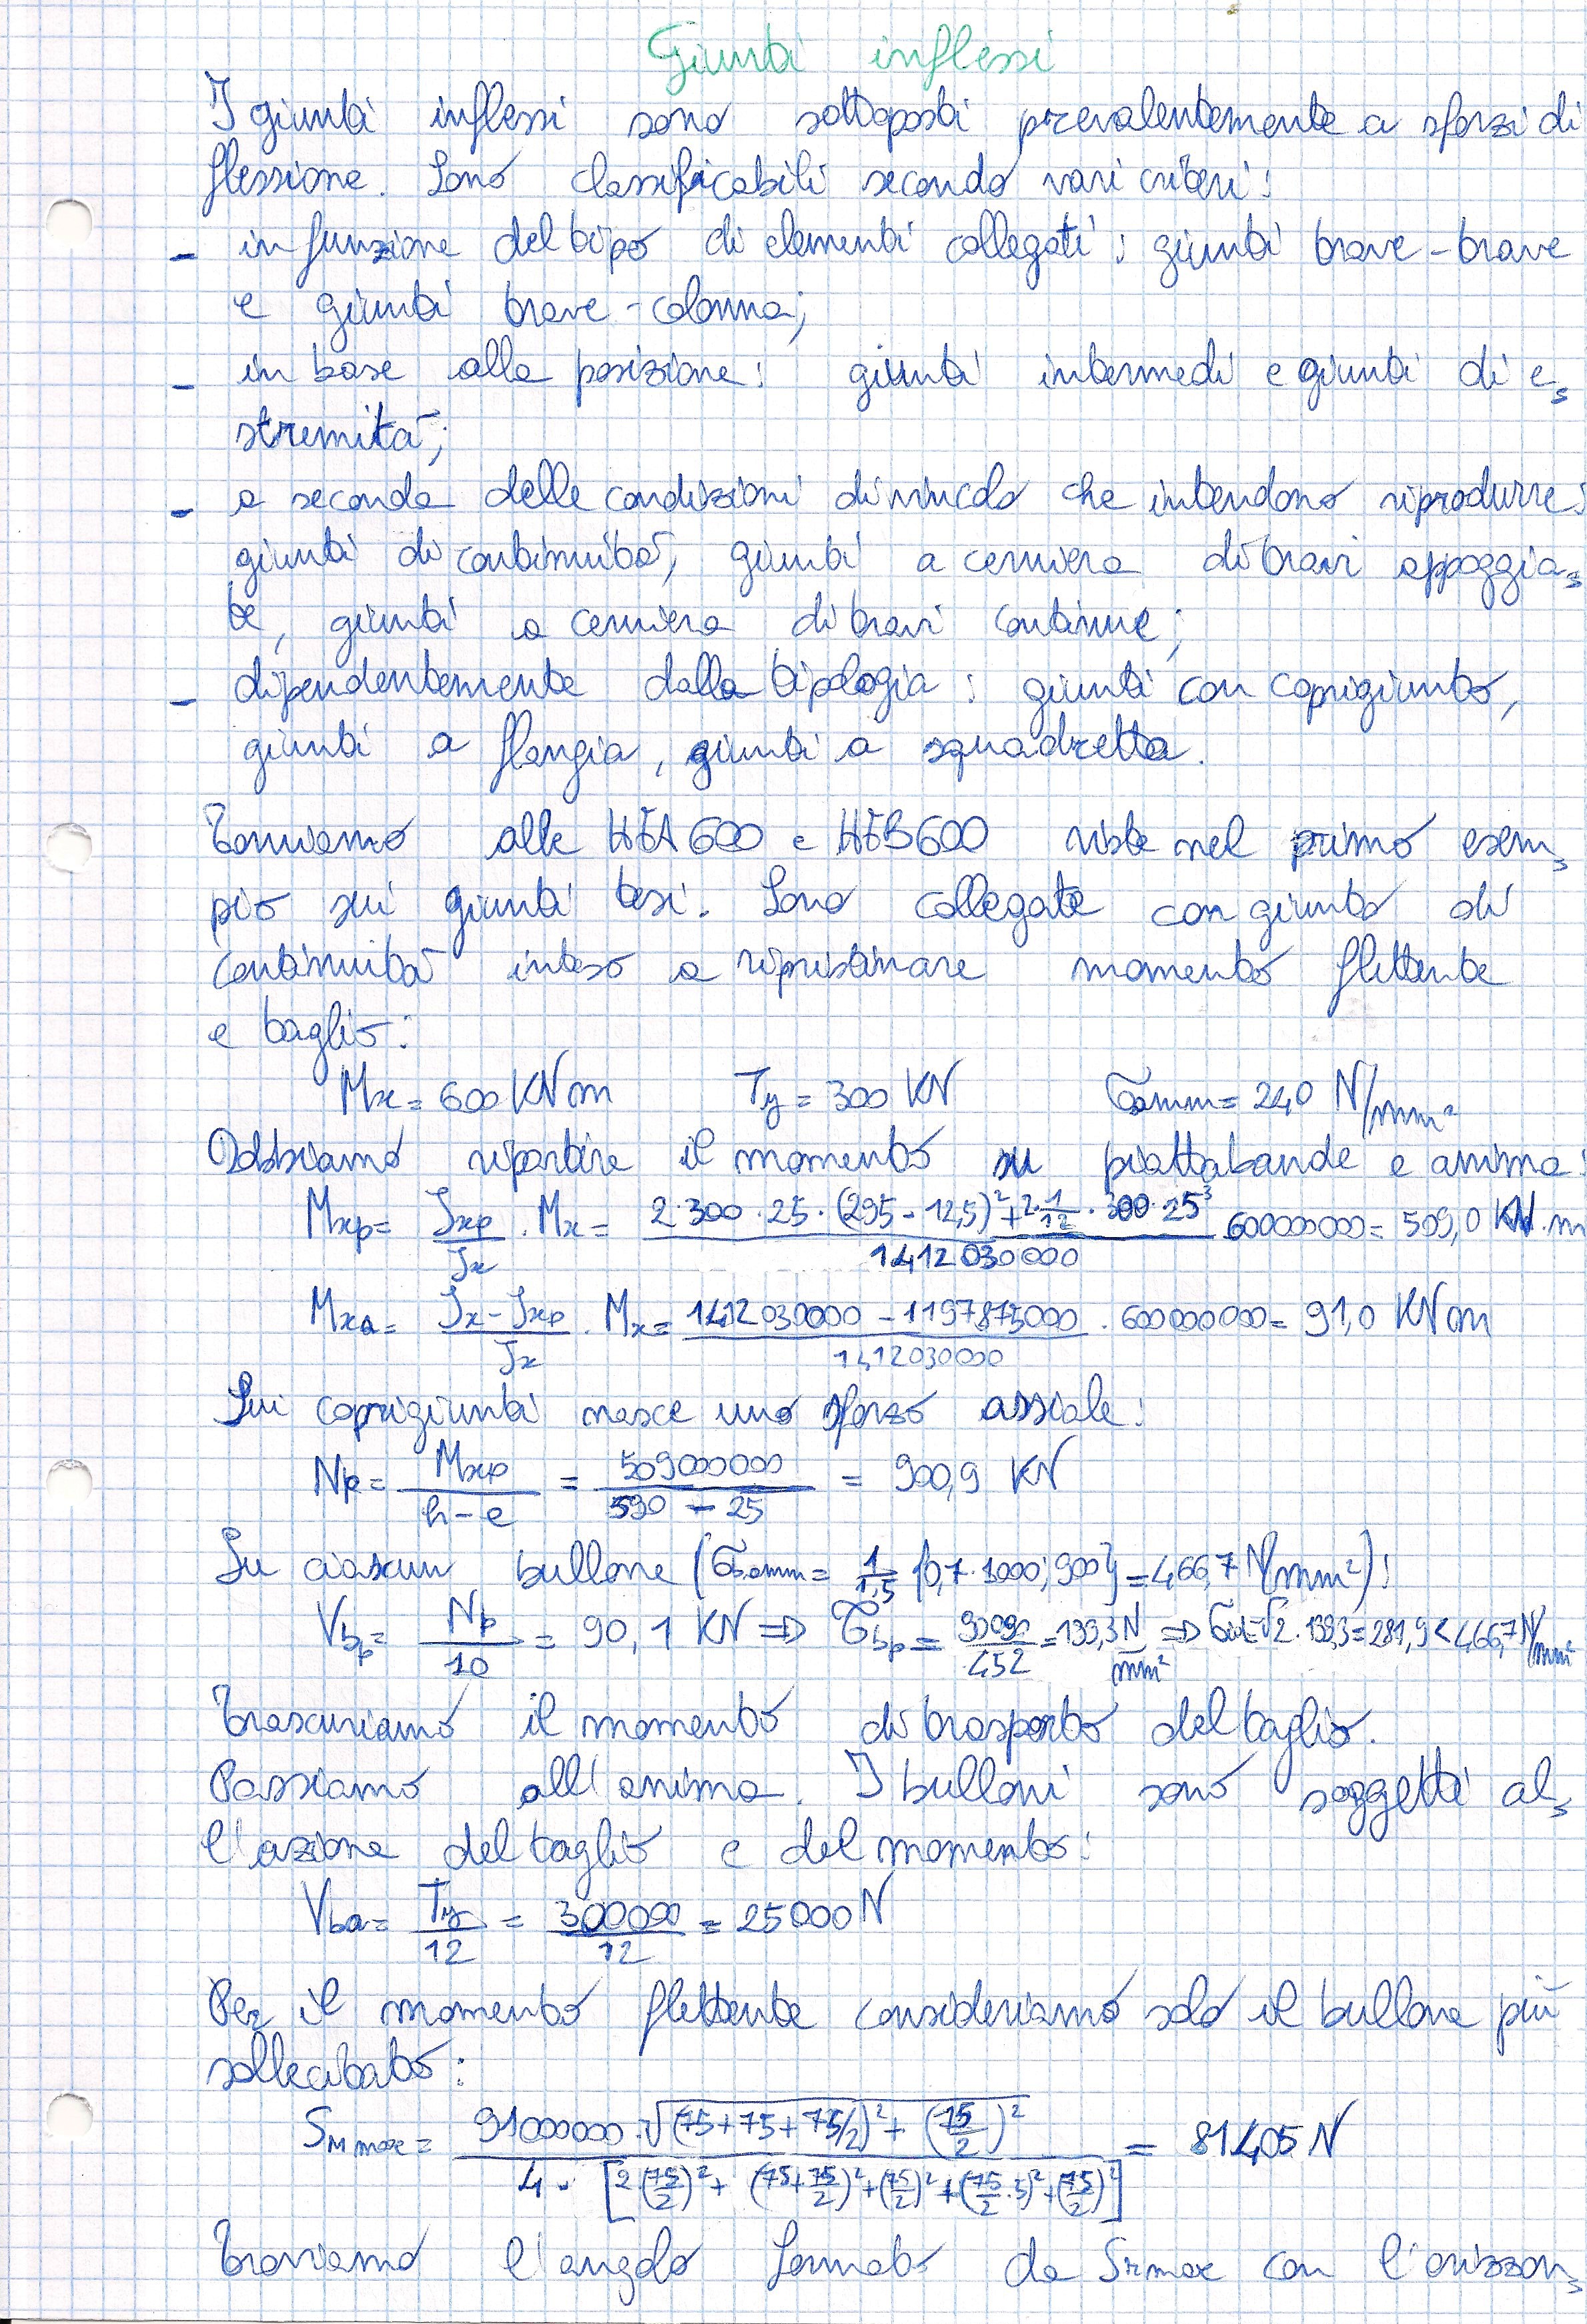 Giunti inflessi
I giunti inflessi sono sottoposti prevalentemente a sforzi di
flessione. Sono classificabili secondo vari criteri:
- in funzione del tipo di elementi collegati: giunti trave-trave
e giunti trave-colonna;
- in base alla posizione: giunti intermedi e giunti di e=
stremità;
- a seconda delle condizioni di vincolo che intendono riprodurre:
giunti di continuità, giunti a cerniera di travi appoggia=
te, giunti a cerniera di travi continue;
- dipendentemente dalla tipologia: giunti con coprigiunto,
giunti a flangia, giunti a squadretta.
Torniamo alle HEA 600 e HEB 600 viste nel primo esem=
pio sui giunti tesi. Sono collegate con giunto di
continuità inteso a ripristinare momento flettente
e taglio:
Mx = 600 KNm Ty = 300 KN σamm = 240 N/mm²
Dobbiamo ripartire il momento su piattabande e anima:
Mxp = Jxp/Jx · Mx = (2·300·25·(295-12,5)² + 2·1/12·300·25³)/1412030000 · 600000000 = 509,0 KN·m
Mxa = (Jx-Jxp)/Jx · Mx = (1412030000 - 1197875000)/1412030000 · 600000000 = 91,0 KNm
Sui coprigiunti nasce uno sforzo assiale:
Np = Mxp/(h-e) = 509000000/(590-25) = 900,9 KN
Su ciascun bullone (σb,amm = 1/1,5 {0,7·1000; 900} = 466,7 N/mm²):
Vbp = Np/10 = 90,1 KN ⇒ τbp = 90090/452 = 199,3 N/mm² ⇒ σid = √2·199,3 = 281,9 < 466,7 N/mm²
Trascuriamo il momento di trasporto del taglio.
Passiamo all'anima. I bulloni sono soggetti al=
l'azione del taglio e del momento:
Vba = Ty/12 = 300000/12 = 25000 N
Per il momento flettente consideriamo solo il bullone più
sollecitato:
SM max = 91000000·√((75+75+75/2)² + (75/2)²) / 4·[2(75/2)² + (75+75/2)² + (75/2)² + (75/2·5)² + (75/2)²] = 81405 N
Troviamo l'angolo formato da SM max con l'orizzon=